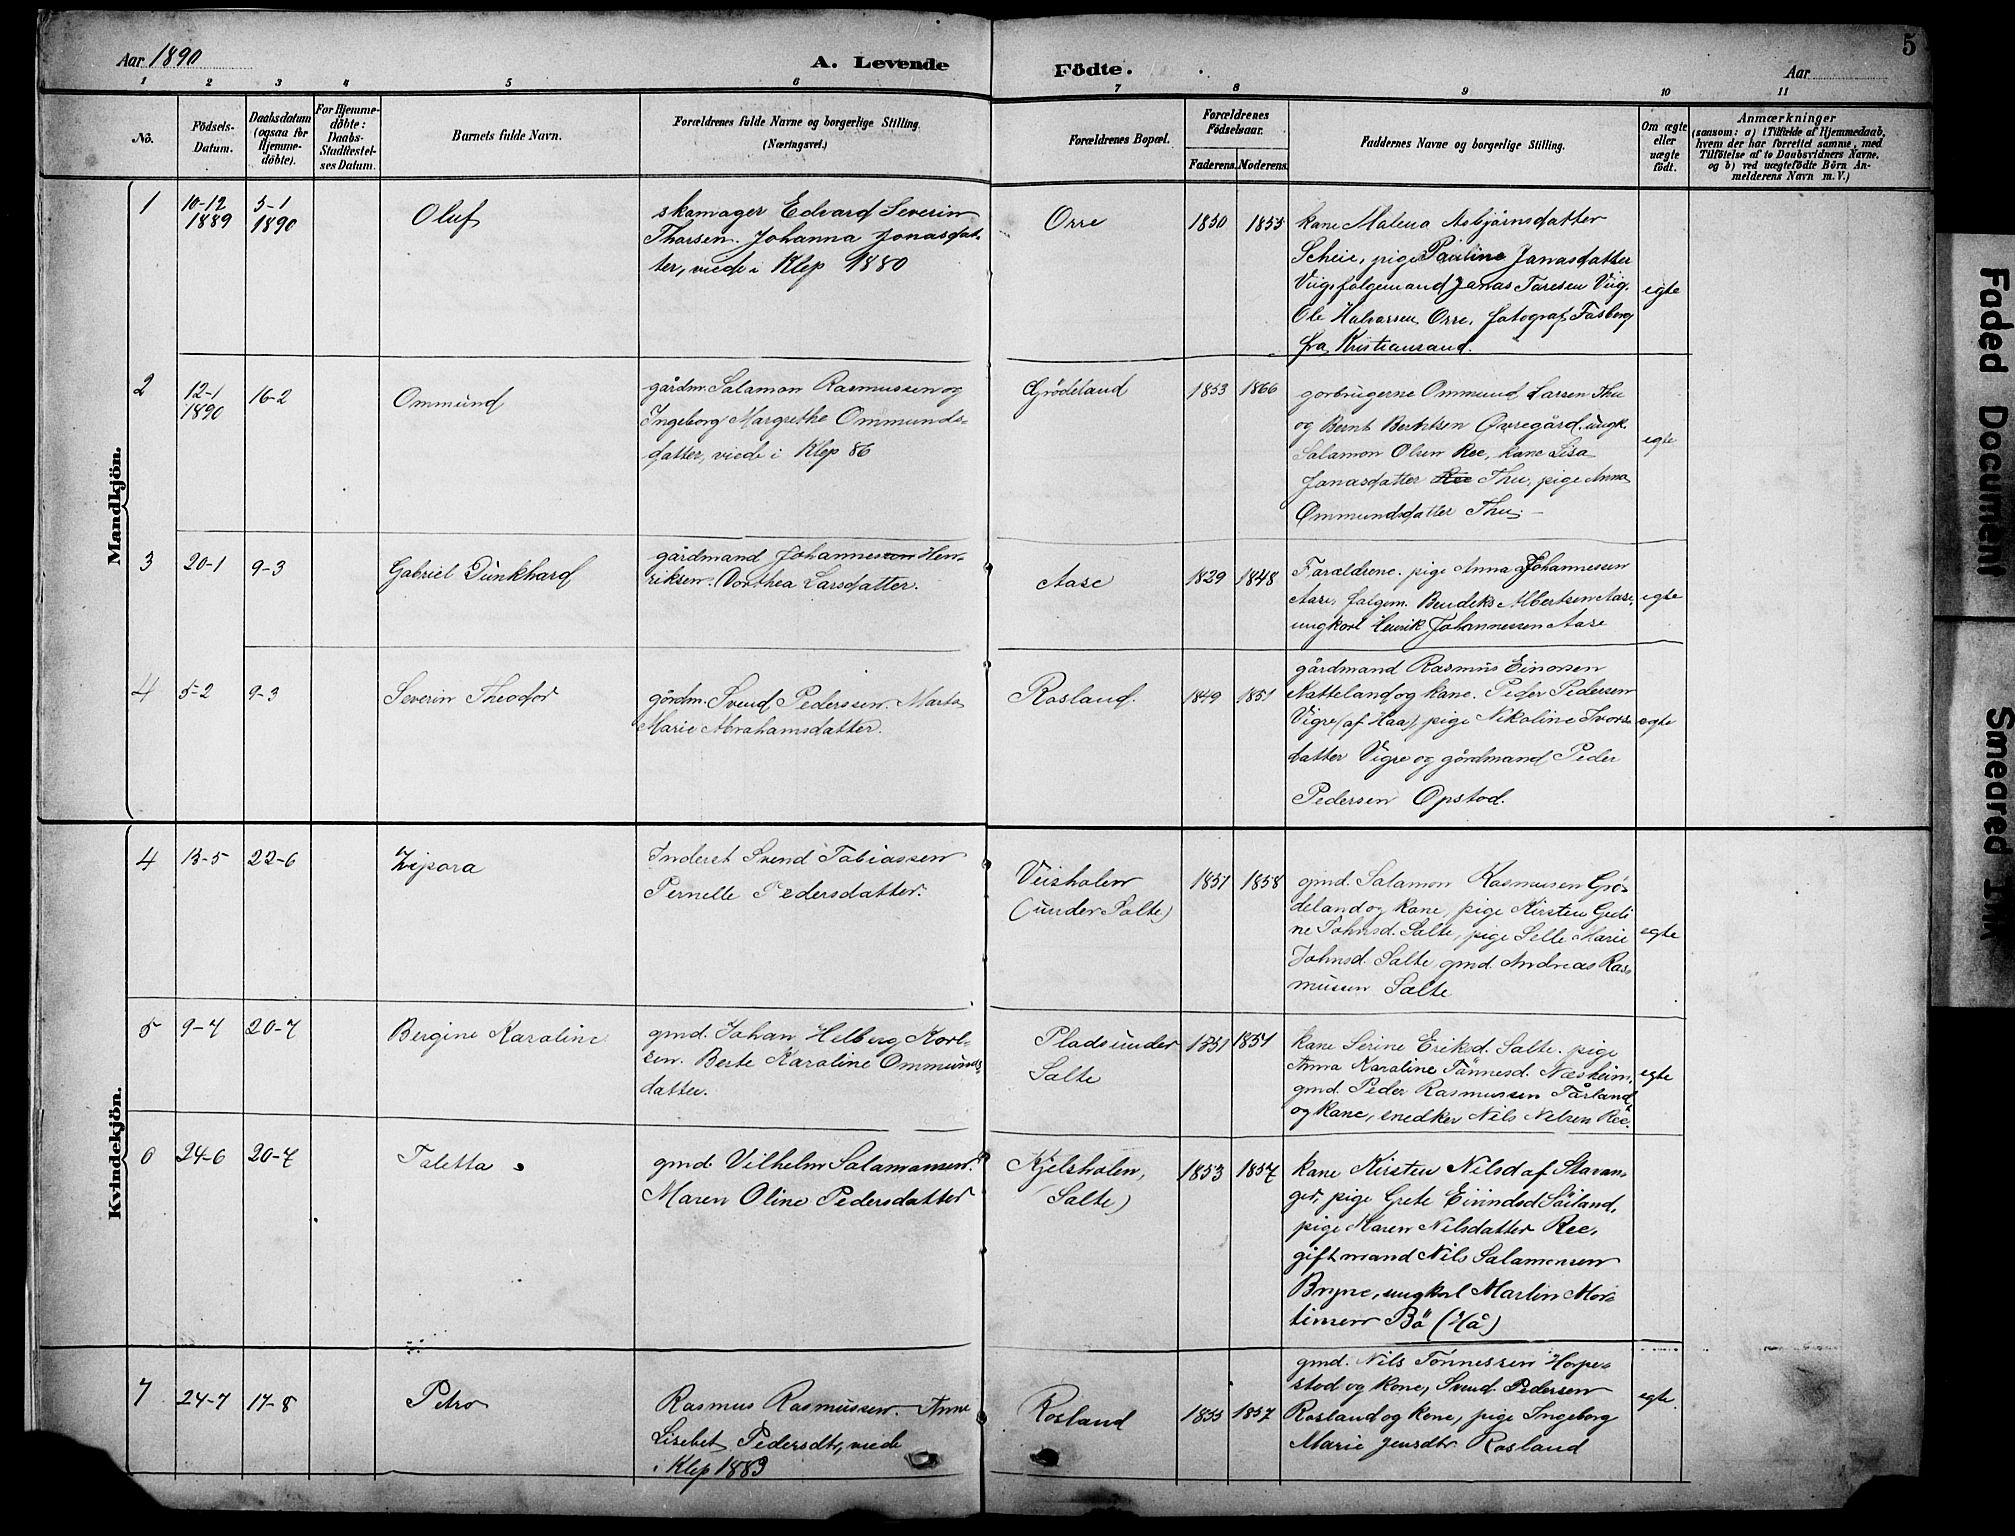 Aar 1890
A. Levende
Födte.
Aar
5
1
2
3
4
5
6
7
8
9
10
11
No.
Födsels-
Datum.
Daabsdatum
(ogsaa for
Hjemme-
döbte).
For Hjemme-
döbte:
Daabs-
Stadfæstel-
ses Datum.
Barnets fulde Navn.
Forældrenes fulde Navne og borgerlige Stilling.
(Næringsvei.)
Forældrenes Bopæl.
Forældrenes
Födselsaar.
Faderens.
Moderens.
Faddernes Navne og borgerlige Stilling.
Om ægte
eller
uægte
födt.
Anmærkninger
(saasom: a) i Tilfælde af Hjemmedaab,
hvem der har forrettet samme, med
Tilföielse af to Daabsvidners Navne,
og b) ved uægtefödte Börn An-
melderens Navn m. V.)
Mandkjön.
1
10-12
1889
5-1
1890
Oluf
skomager Edvard Severin
Thorsen. Johanna Jonasdat-
ter, viede i Klep 1880
Orre
1850
1855
kone Malena Asbjørnsdatter
Scheie, pige Pauline Jonasdatter
Viig, folgemand Jonas Taresen Viig.
Ole Halvorsen Orre, fotograf Fosberg
fra Kristiansand.
egte
2
12-1
1890
16-2
Ommund
gårdm. Salamon Rasmussen og
Ingeborg Margrethe Ommunds-
datter, viede i Klep 86
Grödeland
1853
1866
gorbrugerne Ommund Larsen Thu
og Bernt Berntsen Øvregård. ungk.
Salamon Olsen Ree, kone Lisa
Jonasdatter Ree Thu, pige Anna
Ommundsdatter Thu. –
egte
3
20-1
9-3
Gabriel Dunkhard
gårdmand Johannesson Hen-
riksen. Dorthea Larsdatter.
Aase
1829
1848
Forældrene. pige Anna Johannessen
Aase, folgem. Bendiks Albertsen Aase,
ungkorl Henrik Johannessen Aase
egte
4
5-2
9-3
Severin Theodor
gördm. Svend Pederssen. Marta
Marie Abrahamsdatter.
Rosland.
1849
1851
gårdmand Rasmus Einorsen
Natteland og kone. Peder Pedersen
Vigre (af Haa), pige Nikoline Ivors-
datter Vigre og gördmand Peder
Pedersen Opstod.
egte
Kvindekjön.
4
13-5
22-6
Zipora
Inderst Svend Tobiassen
Pernelle Pedersdatter.
Veisholen
(under Salte)
1851
1858
gmd. Salamon Rasmusen Grö-
deland og kone, pige Kirsten Gedi
ne Johnsd. Salte, pige Selle Marie
Johnsd. Salte, gmd. Andreas Ras-
musen Salte
egte
5
9-7
20-7
Bergine Karoline
gmd. Johan Helberg Korl-
sen. Berte Karoline Ommunds
datter.
Plads under
Salte
1851
1851
kone Serine Eriksd. Salte. pige
Anna Karoline Tönnesd. Næsheim,
gmd. Peder Rasmussen Tårland
og kone, snedker Nils Nelsen Ree.
egte
6
24-6
20-7
Taletta
gmd. Vilhelm Salamonsen.
Maren Oline Pedersdatter
Kjelsholen,
(Salte)
1853
1857
kone Kirsten Nilsd af Stavan-
ger, pige Grete Eivindsd Söiland,
pige Maren Nilsdatter Ree,
gift mand Nils Salamonsen
Bryne, ungkorl Martin Mor-
tensen Bö (Hå)
7
24-7
17-8
Petra
Rasmus Rasmussen. Anne
Lisebet Pedersdtr, viede
i Klep 1883
Rosland
1855
1857
gmd. Nils Tönnessen Horpe-
stod og kone, Svend Pedersen
Rosland og kone, pige Ingeborg
Marie Jensdtr Rosland
egte.
Faded Document
Smeared Ink